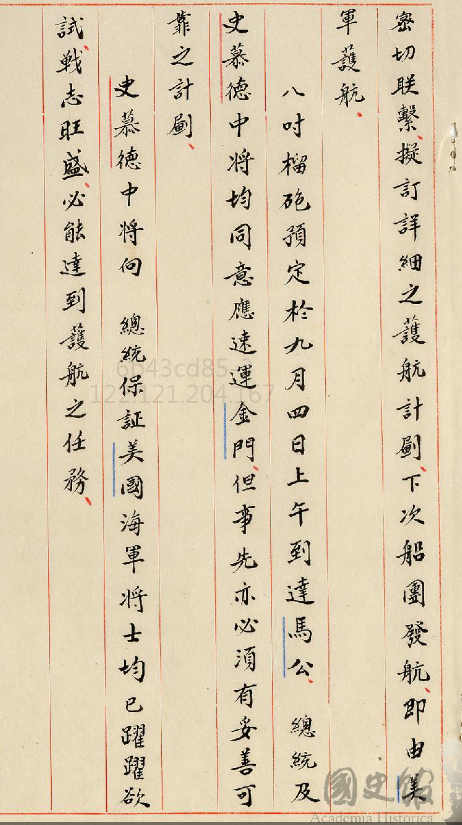 密切联繫、擬訂詳細之護航計劃、下次船團發航、即由美
軍護航、
八吋榴砲預定於九月四日上午到達馬公、 總統及
史慕德中将均同意應速運金門、但事先亦必須有妥善可
靠之計劃、
史慕德中将向 總統保証美國海軍将士均已躍躍欲
試、戰志旺盛、必能達到護航之任務、
6643cd85
122.121.204.167
國史館
Academia Historica